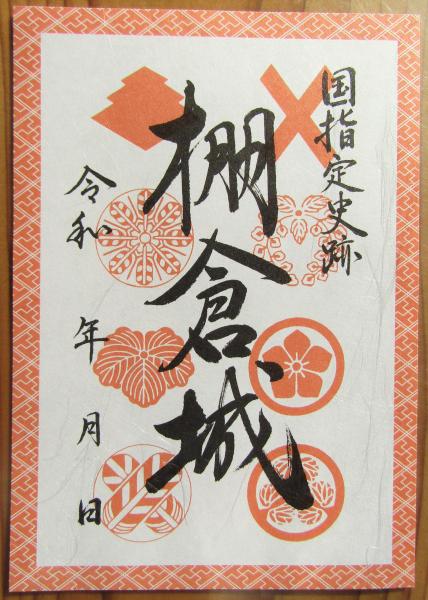 国指定史跡
棚倉城
令和 年 月 日